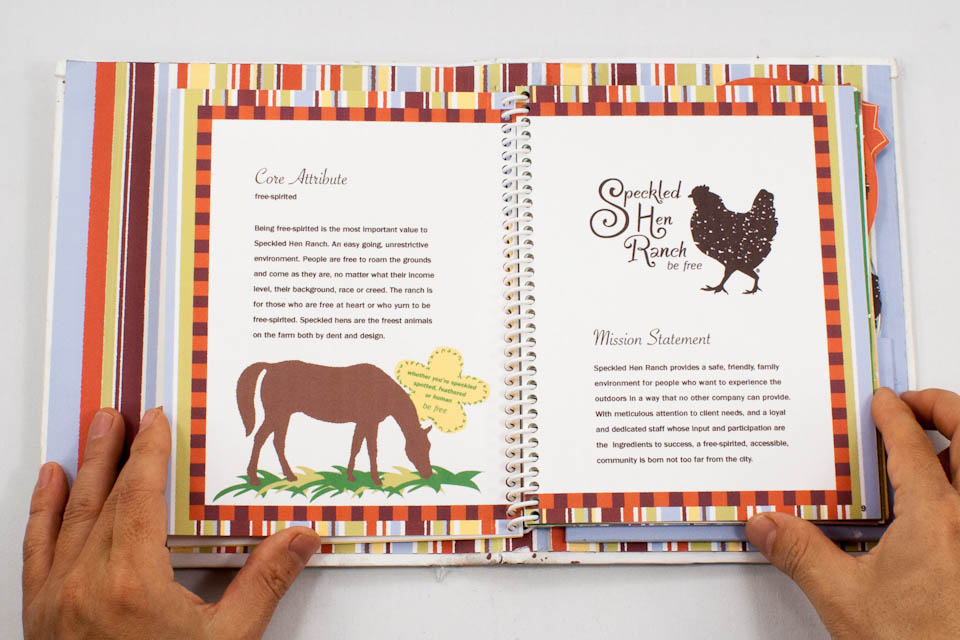 Core Attribute
free-spirited
Being free-spirited is the most important value to
Speckled Hen Ranch. An easy going, unrestrictive
environment. People are free to roam the grounds
and come as they are, no matter what their income
level, their background, race or creed. The ranch is
for those who are free at heart or who yurn to be
free-spirited. Speckled hens are the freest animals
on the farm both by dent and design.
whether you're speckled
spotted, feathered
or human
be free
Speckled
Hen
Ranch
be free
Mission Statement
Speckled Hen Ranch provides a safe, friendly, family
environment for people who want to experience the
outdoors in a way that no other company can provide.
With meticulous attention to client needs, and a loyal
and dedicated staff whose input and participation are
the ingredients to success, a free-spirited, accessible,
community is born not too far from the city.
9